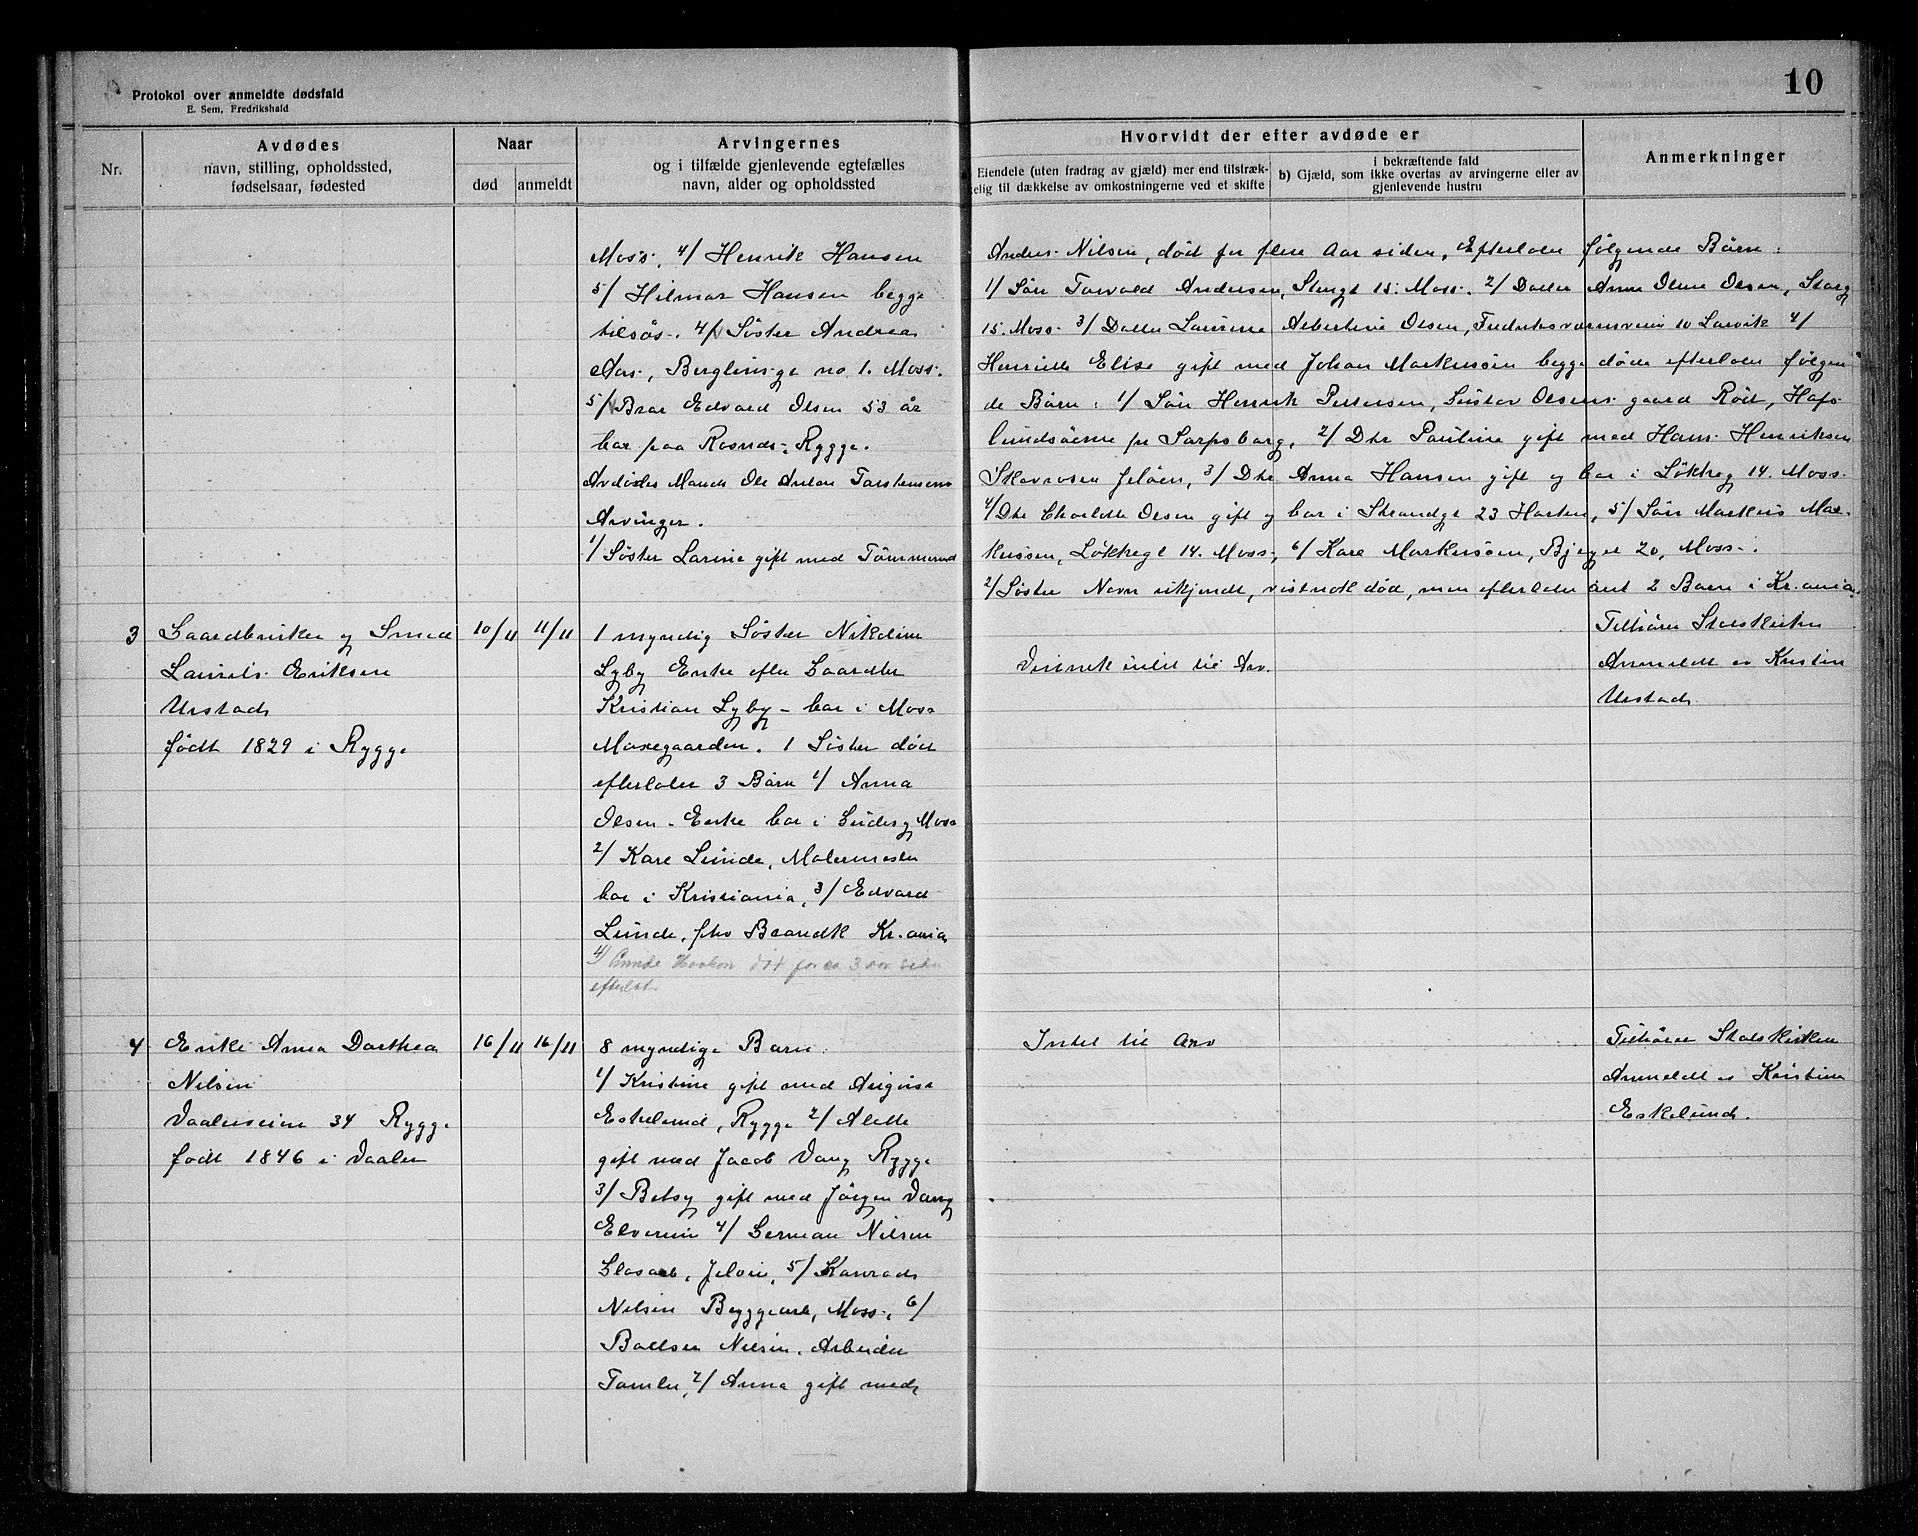 Protokol over anmeldte dødsfald
E. Sem, Fredrikshald
10
Nr.
Avdødes
navn, stilling, opholdssted,
fødselsaar, fødested
Naar
død
anmeldt
Arvingernes
og i tilfælde gjenlevende egtefælles
navn, alder og opholdssted
Hvorvidt der efter avdøde er
Eiendele (uten fradrag av gjæld) mer end tilstræk-
kelig til dækkelse av omkostningerne ved et skifte
i bekræftende fald
b) Gjæld, som ikke overtas av arvingerne eller av
gjenlevende hustru
Anmerkninger
Moss, 4/ Henrik Hansen
5/ Hilmar Hansen begge
tilsøs. 4/ Søster Andrea
Aas, Berglings-g no 1. Moss.
5/ Bror Edvard Olsen 53 år
bor paa Rosnes, Rygge.
Avdødes Mands Ole Anton Torstensens
Arvinger.
1/ Søster Larine gift med Tømmermd
Anders Nilsen, død for flere Aar siden, Efterloder følgende Børn:
1/ Søn Torvald Andersen, Stengt 15. Moss. 2/ Datter Anna Oline Olsen, Steng
15. Moss 3/ Datter Laurine Albertine Olsen, Fredriksvernsveien 10 Larvik 4/
Henriette Elise gift med Johan Markussen begge døde efterloder følgen
de Børn: 1/ Søn Henrik Pettersen, Gustav Olsens gaard Röd, Hafs-
lundsøerne pr Sarpsborg, 2/ Dtr Pauline gift med Hans Henriksen
Skovrosen Jeløen, 3/ Dtr Anna Hansen gift og bor i Løkkeg 14. Moss
4/ Dtr Charlotte Olsen gift og bor i Strandgt 23 Horten, 5/ Søn Markus Mar-
kussen, Løkkegt 14. Moss, 6/ Karl Markussen, Bjergt 20, Moss.
2/ Søster Navn ukjendt, vistnok død, men efterloder sig 2 Barn i Kr.ania.
3
Gaardbruker og Smed
Laurits Eriksen
Urstad
født 1829 i Rygge
10/11
11/11
1 myndig Søster Nikoline
Lyby Enke efter Gaardbr
Kristian Lyby - bor i Moss
Mosegaarden. 1 Søster død
efterloder 3 Børn 1/ Anna
Olsen - Enke bor i Moss
2/ Karl Lunde, Malermester
bor i Kristiania, 3/ Edvard
Lunde, fhv Kr.ania
4/ Haakon død for ca 3 aar siden
efterlot
Vistnok intet til Arv.
Tilhører Statskirken
Anmeldt av Kristin
Urstad
4
Enke Anna Dorthea
Nilsen
Vaalerveien 34 Rygge
født 1846 i Vaaler
16/11
16/11
8 myndige Barn.
1/ Kristine gift med
Eskelund, Rygge 2/ Alette
gift med Jacob Vang Rygge
3/ Betsy gift med Jørgen Vang
Elverum 4/ Herman Nilsen
Glasarb, Jeløen, 5/ Konrad
Nilsen Bryggearb, Moss, 6/
Baltser Nilsen, Arbeider
Tomler, 7/ Anna gift med
Intet til Arv
Tilhører Statskirken
Anmeldt av Kristine
Eskelund.